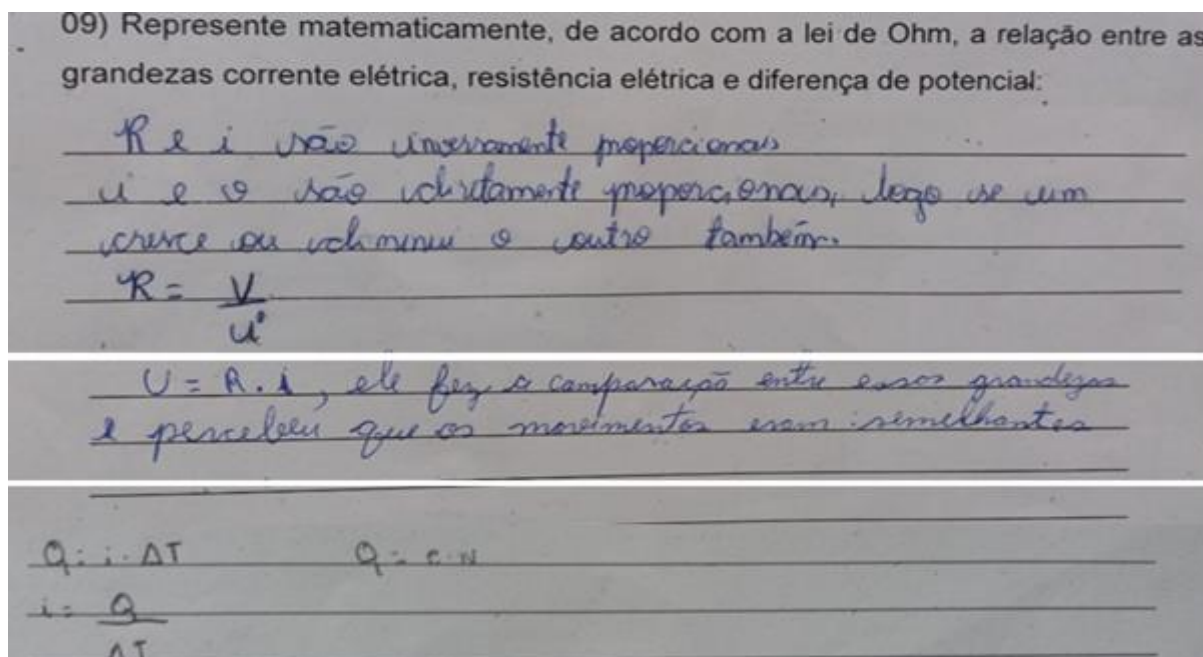 09) Represente matematicamente, de acordo com a lei de Ohm, a relação entre as
grandezas corrente elétrica, resistência elétrica e diferença de potencial:
R e i são inversamente proporcionais
i e v são diretamente proporcionais, logo se um
cresce ou diminui o outro também.
R = V
i
U = R . i, ele fez a comparação entre essas grandezas
e percebeu que os movimentos eram semelhantes
Q = i . ΔT Q = e . N
i = Q
ΔT